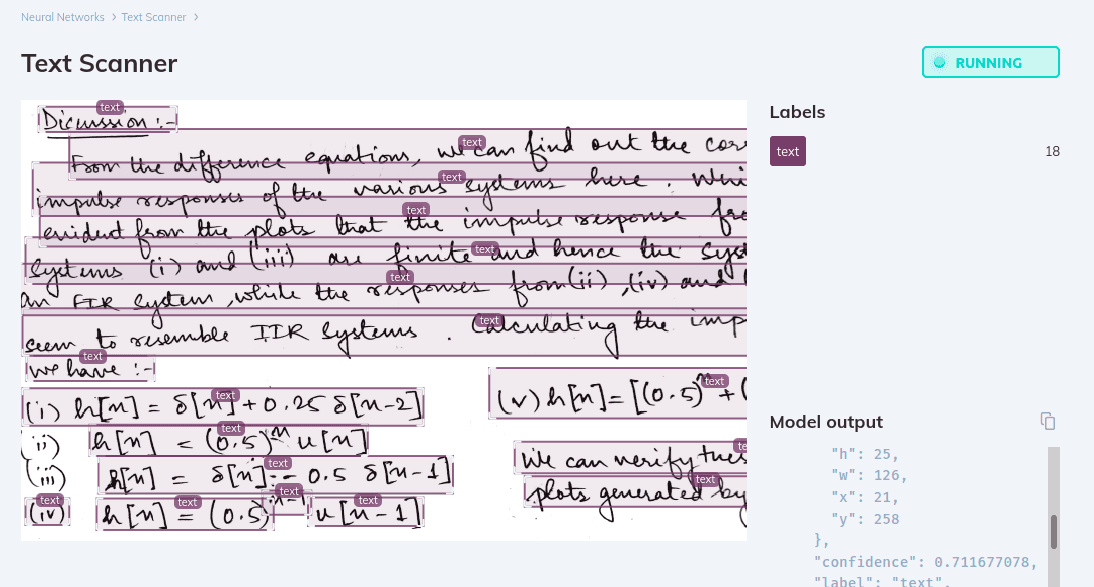 Neural Networks > Text Scanner >
Text Scanner
RUNNING
Labels
text
18
Model output
"h": 25,
"w": 126,
"x": 21,
"y": 258
},
"confidence": 0.711677078,
"label": "text",
text
Dicussion :-
text
From the difference equations, we can find out the corr
text
impulse responses of the various systems here. Whi
text
evident from the plots that the impulse response fro
text
systems (i) and (iii) are finite and hence the syst
text
an FIR system, while the responses from (ii), (iv) and
text
seem to resemble IIR systems. Calculating the imp
text
we have :-
text
(i) h[n] = δ[n] + 0.25 δ[n-2]
text
(ii) h[n] = (0.5)^n u[n]
text
(iii) h[n] = δ[n] -- 0.5 δ[n-1]
text
text
text
text
(iv) h[n] = (0.5)^n-1 u[n-1]
text
(v) h[n] = [(0.5)^n + (
te
We can verify thes
text
plots generated by